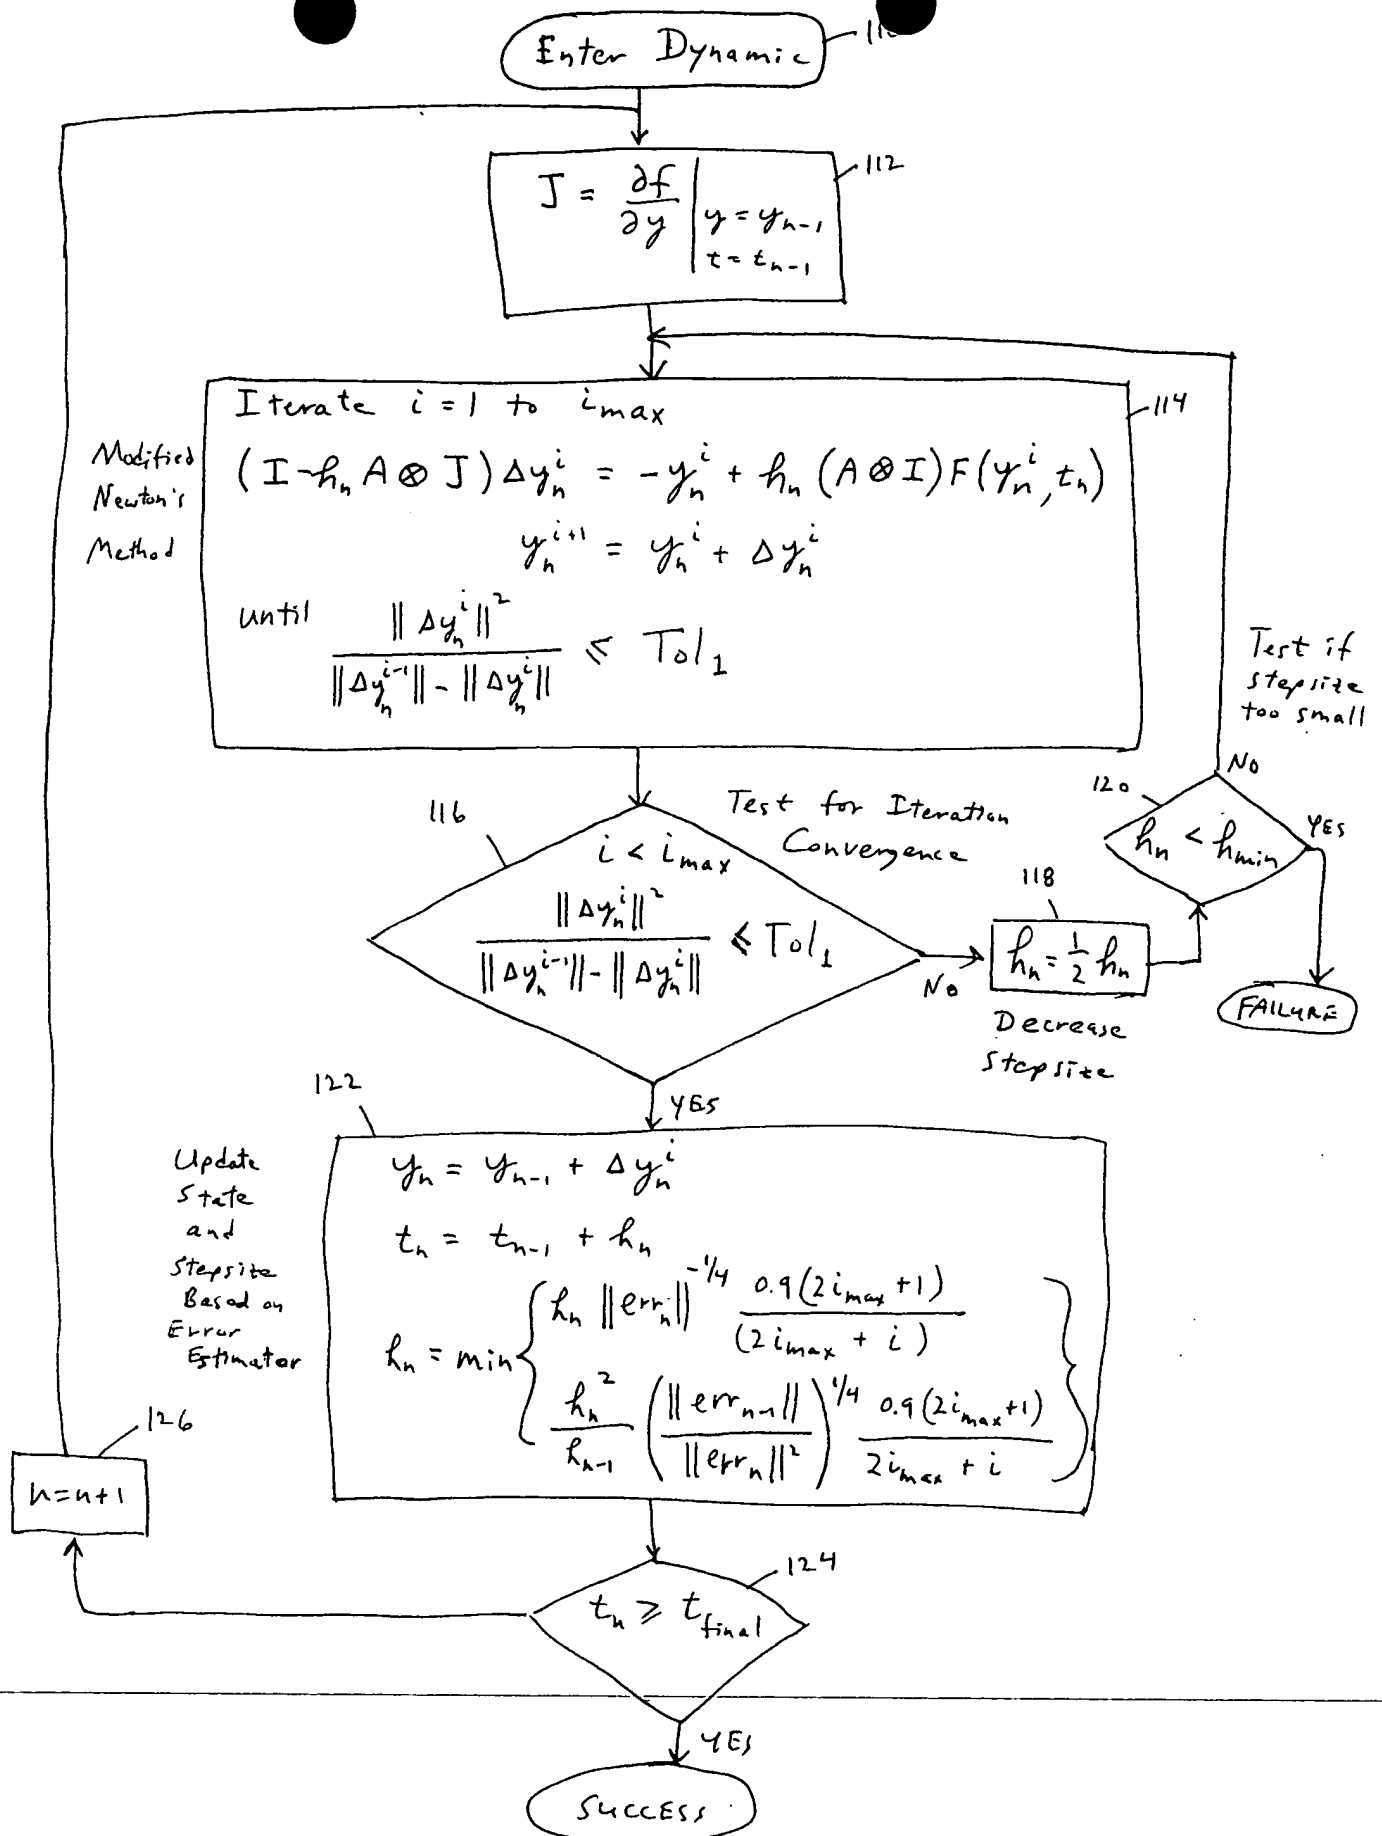 Enter Dynamic
112
J = ∂f/∂y | y = yₙ₋₁
t = tₙ₋₁
Iterate i = 1 to i_max
114
Modified
Newton's
Method
(I - hₙ A ⊗ J) Δyₙⁱ = -yₙⁱ + hₙ (A ⊗ I) F(yₙⁱ, tₙ)
yₙⁱ⁺¹ = yₙⁱ + Δyₙⁱ
until ‖Δyₙⁱ‖² / (‖Δyₙⁱ⁻¹‖ - ‖Δyₙⁱ‖) ≤ Tol₁
Test if
stepsize
too small
NO
120
hₙ < h_min
YES
FAILURE
116
Test for Iteration
Convergence
i < i_max
‖Δyₙⁱ‖² / (‖Δyₙⁱ⁻¹‖ - ‖Δyₙⁱ‖) ≤ Tol₁
NO
118
hₙ = ½ hₙ
Decrease
Stepsize
YES
122
Update
State
and
Stepsize
Based on
Error
Estimator
yₙ = yₙ₋₁ + Δyₙⁱ
tₙ = tₙ₋₁ + hₙ
hₙ = min { hₙ ‖errₙ‖^(-1/4) 0.9(2i_max + 1) / (2i_max + i)
hₙ² / hₙ₋₁ (‖errₙ₋₁‖ / ‖errₙ‖²)^(1/4) 0.9(2i_max + 1) / 2i_max + i }
126
n = n + 1
124
tₙ ≥ t_final
YES
SUCCESS